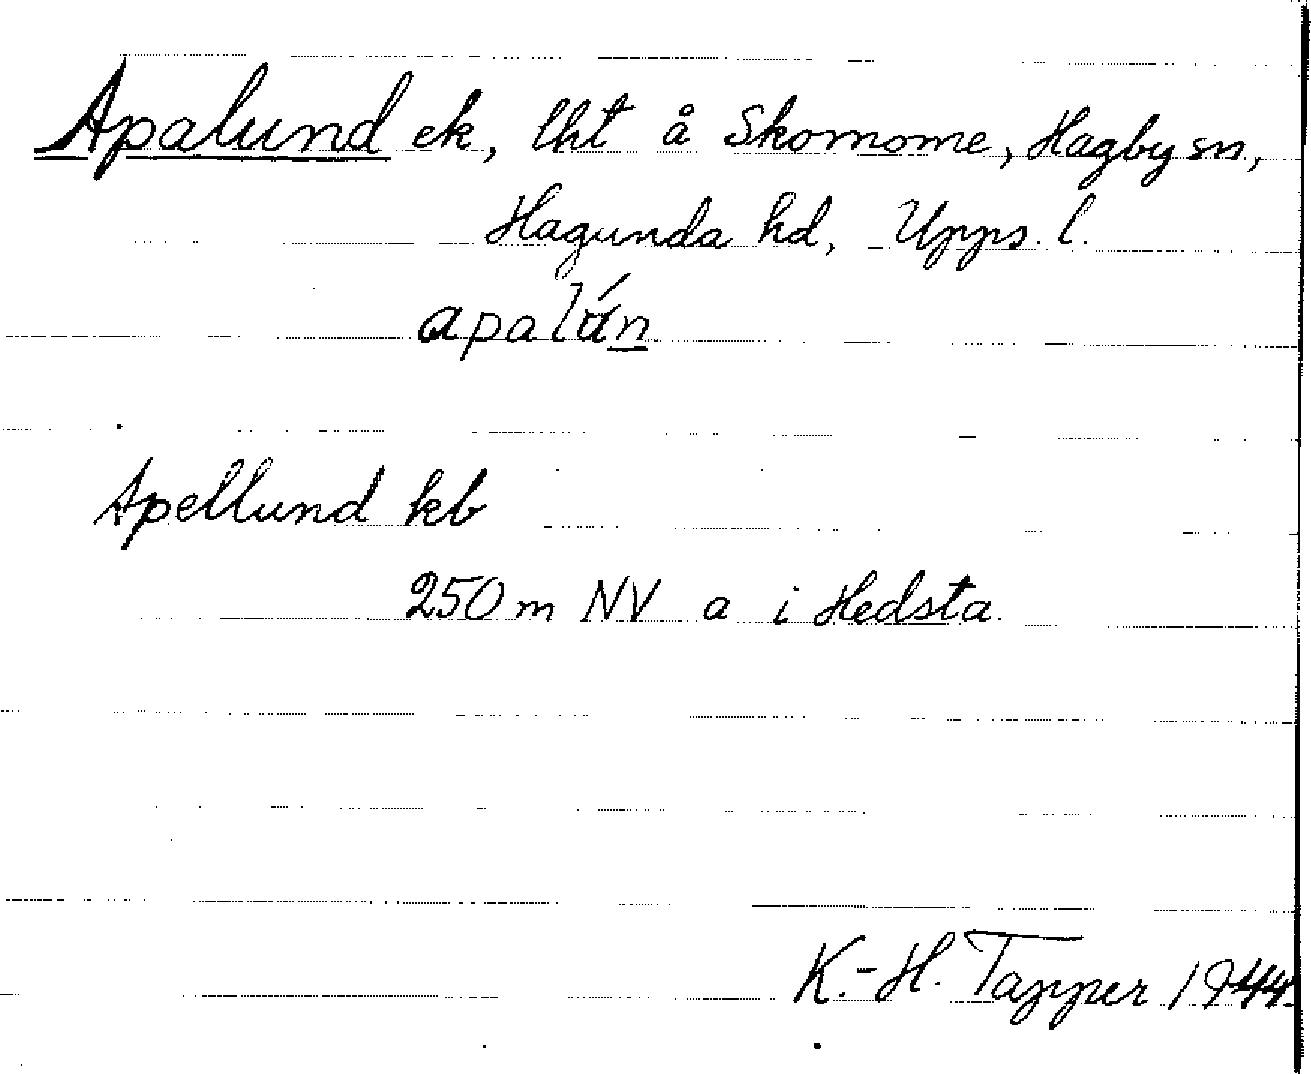 Apalund ek, lht å Skomome, Hagby sn,
Hagunda hd, Upps. l.
apalún
Apellund kb
250 m NV a i Hedsta
K.-H. Tapper 1944.